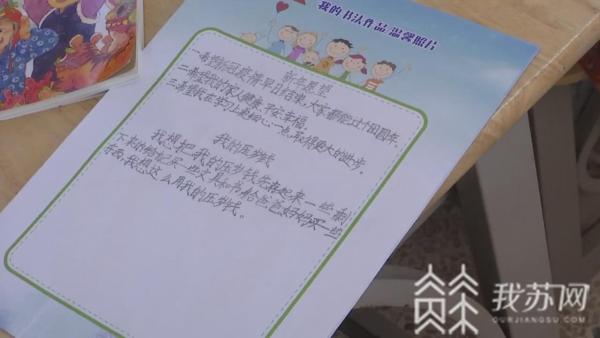 我的书法作品 温馨照片
新年愿望
一.希望新冠疫情早日结束,大家都能过个团圆年。
二.希望我的家人健康、平安幸福。
三.希望我在学习上更细心一点,取得更大的进步。
我的压岁钱
我想把我的压岁钱先存起来一些,剩
下来的给自己买一些文具和书,给爸爸妈妈买一些
东西,我想这么用我的压岁钱。
我苏网
OURJIANGSU.COM